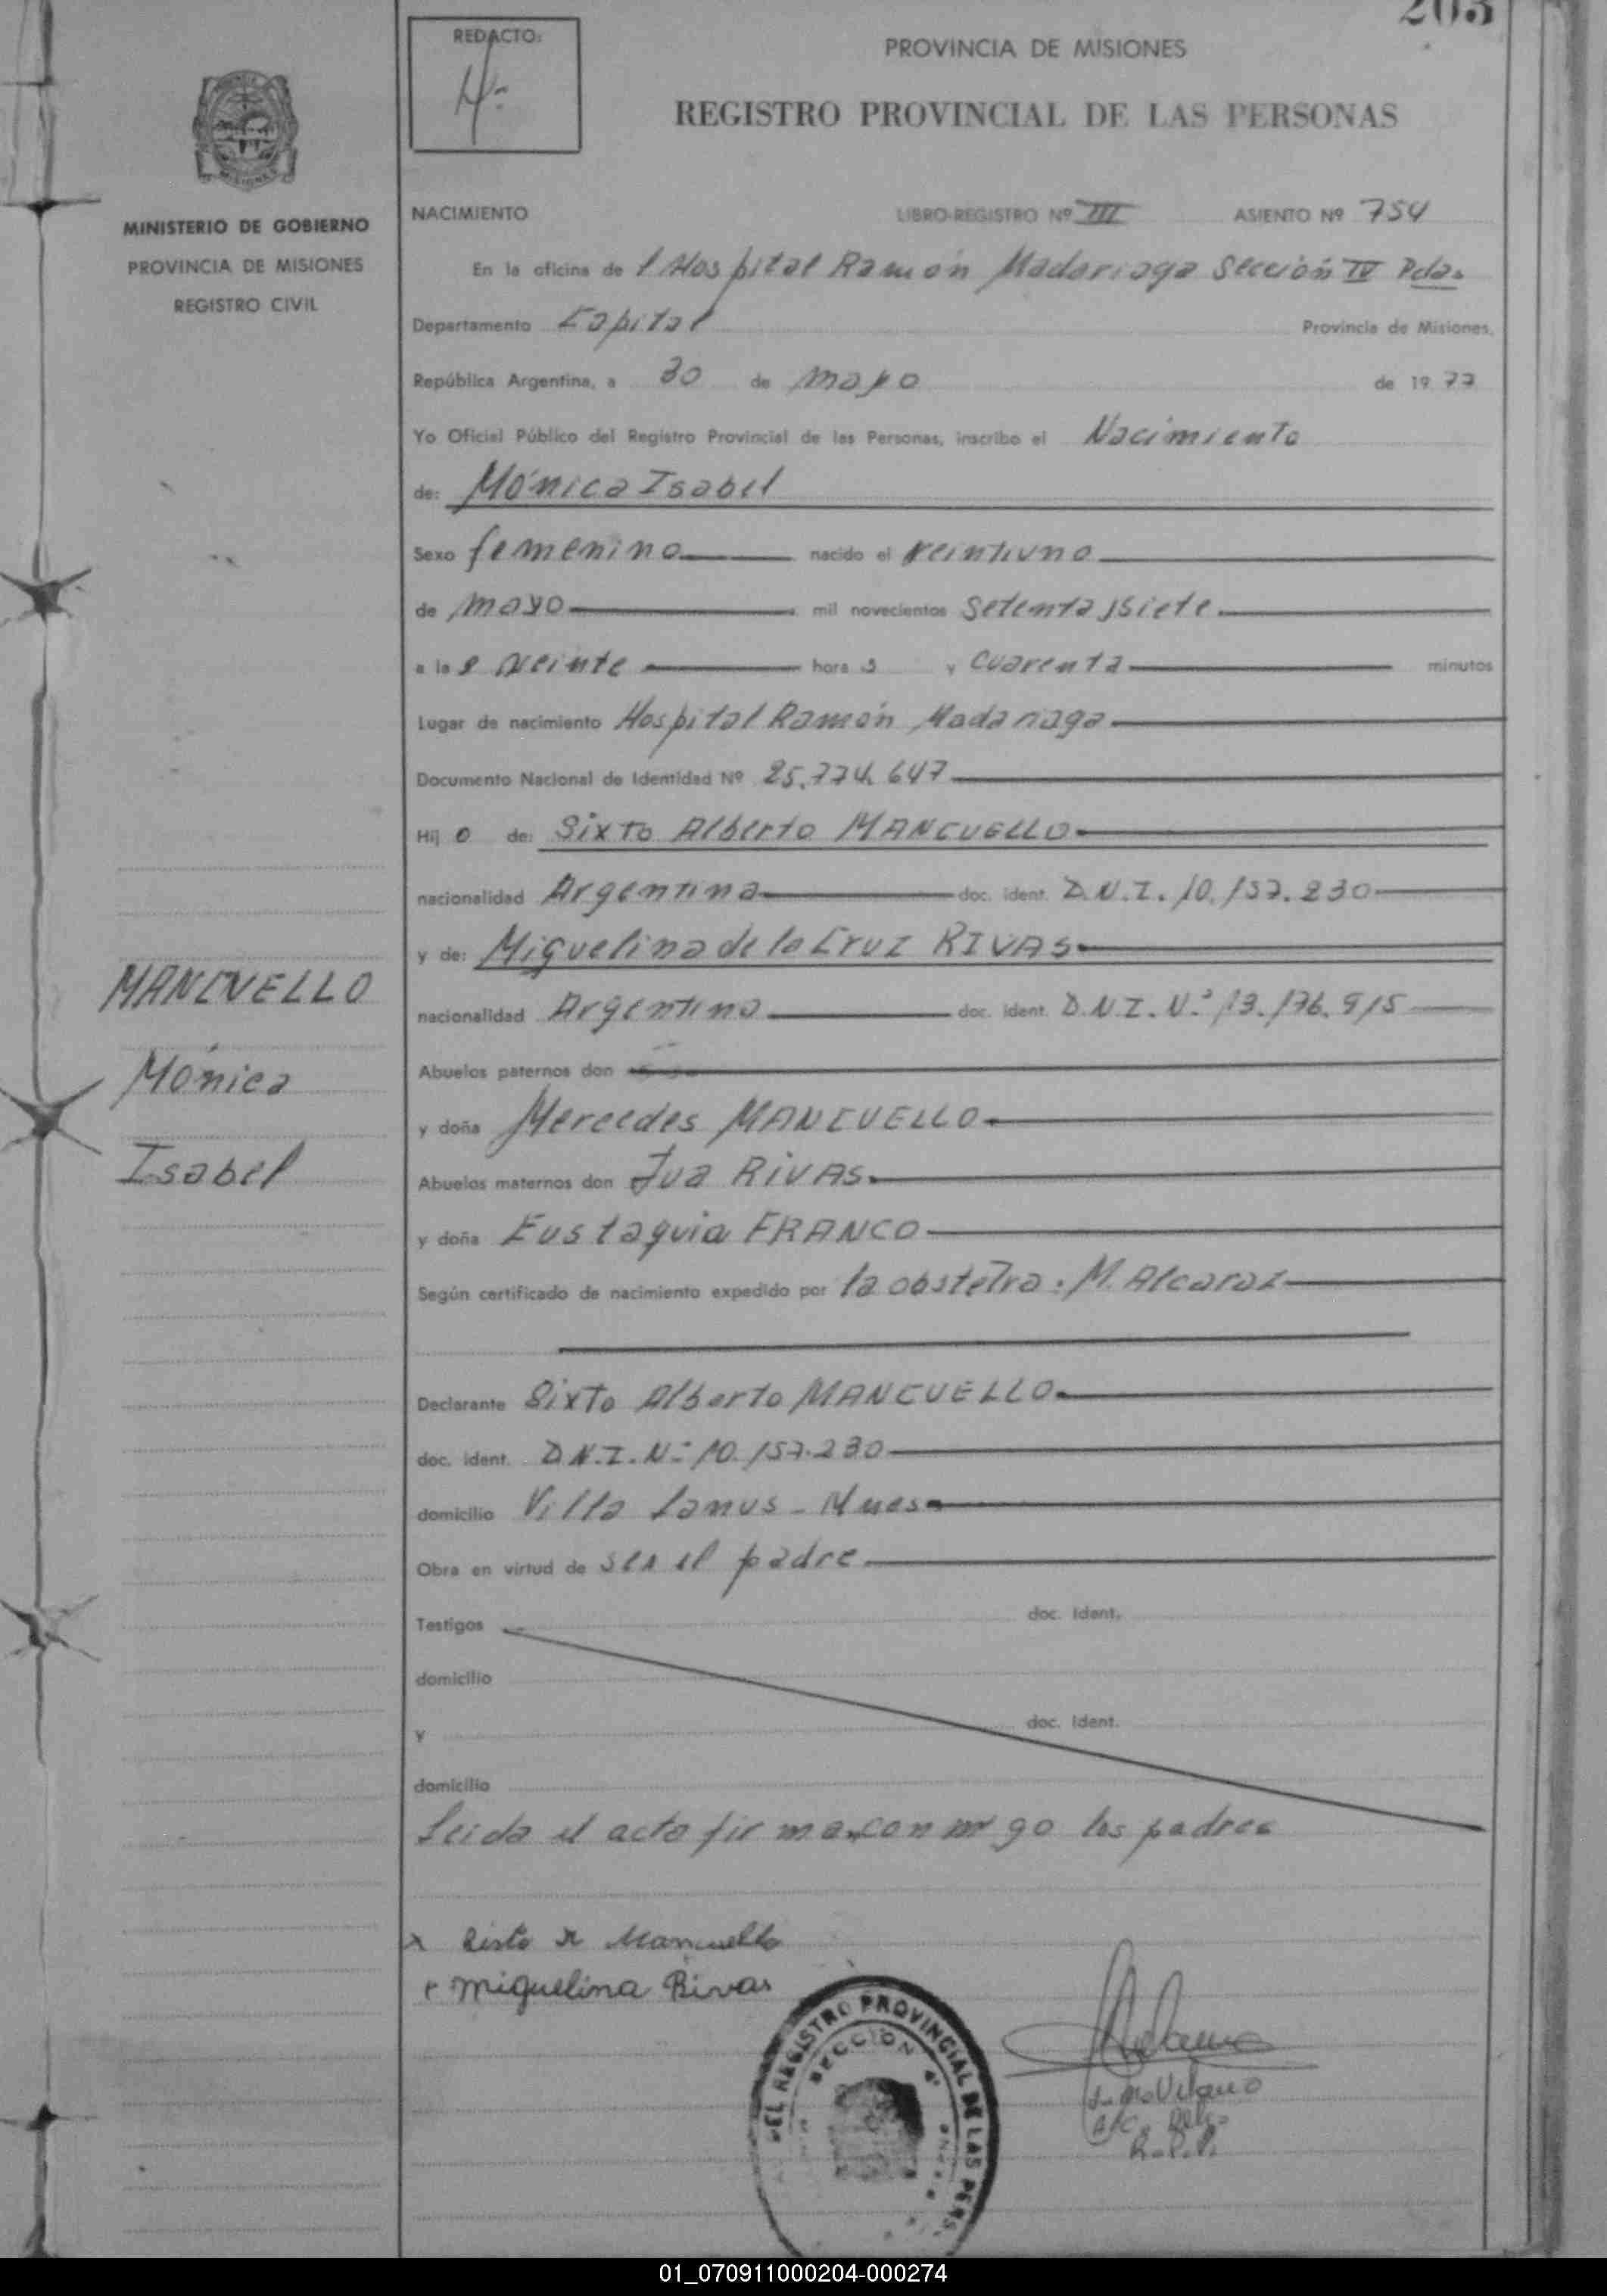 203
REDACTO:
PROVINCIA DE MISIONES
REGISTRO PROVINCIAL DE LAS PERSONAS
MINISTERIO DE GOBIERNO
PROVINCIA DE MISIONES
REGISTRO CIVIL
NACIMIENTO LIBRO-REGISTRO Nº III ASIENTO Nº 754
En la oficina de l Hospital Ramón Madariaga Sección IV Pdas
Departamento Capital Provincia de Misiones,
República Argentina, a 30 de mayo de 1977
Yo Oficial Público del Registro Provincial de las Personas, inscribo el Nacimiento
de: Mónica Isabel
Sexo femenino nacido el veintiuno
de mayo mil novecientos setenta y siete
a las veinte horas y cuarenta minutos
Lugar de nacimiento Hospital Ramón Madariaga
Documento Nacional de Identidad Nº 25.774.647
Hijo de: Sixto Alberto MANCUELLO
nacionalidad Argentina doc. ident. D.N.I. 10.157.230
y de: Miguelina de la Cruz RIVAS
nacionalidad Argentina doc. ident. D.N.I. Nº 13.176.915
Abuelos paternos don
y doña Mercedes MANCUELLO
Abuelos maternos don Jua RIVAS
y doña Eustaquia FRANCO
Según certificado de nacimiento expedido por la obstetra: M. Alcaraz
Declarante Sixto Alberto MANCUELLO
doc. ident. D.N.I. Nº 10.157.230
domicilio Villa Lanus - Mnes
Obra en virtud de ser el padre
Testigos doc. ident.
domicilio
y doc. ident.
domicilio
Leida el acta firman conmigo los padres
MANCUELLO
Mónica
Isabel
x Sisto A Mancuello
x Miguelina Rivas
DEL REGISTRO PROVINCIAL DE LAS PERS.
SECCION 4ª
R.P.P.
01_070911000204-000274